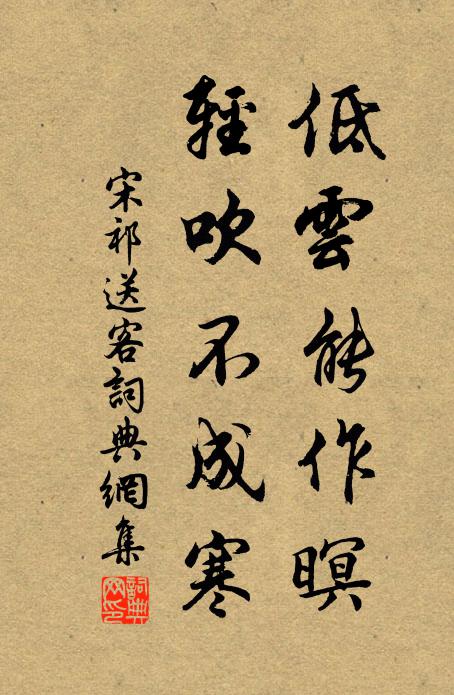 低雲能作暝
輕吹不成寒
宋祁送客詞典網集
詞典
网印